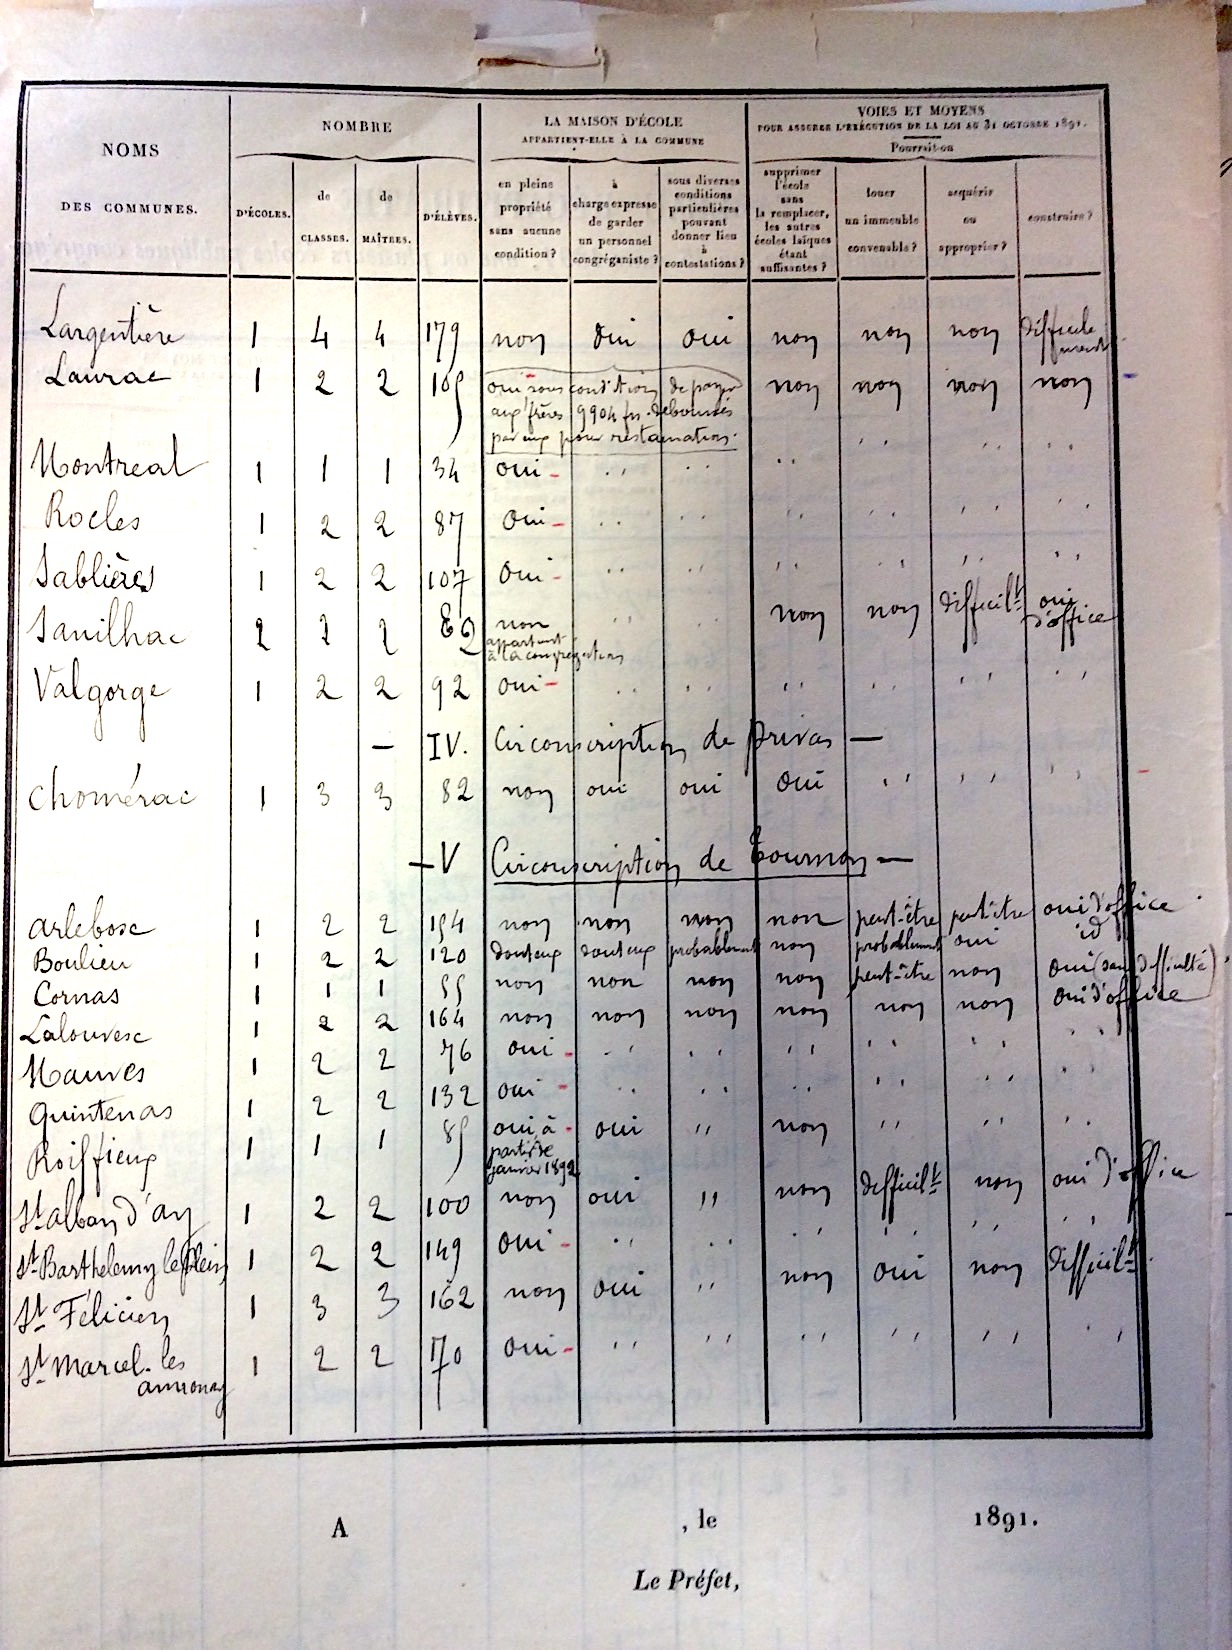 NOMS
DES COMMUNES.
NOMBRE
D'ÉCOLES.
de
CLASSES.
de
MAÎTRES.
D'ÉLÈVES.
LA MAISON D'ÉCOLE
APPARTIENT-ELLE À LA COMMUNE
en pleine
propriété
sans aucune
condition ?
à
charge expresse
de garder
un personnel
congréganiste ?
sous diverses
conditions
particulières
pouvant
donner lieu
à
contestations ?
VOIES ET MOYENS
POUR ASSURER L'EXÉCUTION DE LA LOI AU 31 OCTOBRE 1891.
Pourrait-on
supprimer
l'école
sans
la remplacer,
les autres
écoles laïques
étant
suffisantes ?
louer
un immeuble
convenable ?
acquérir
ou
approprier ?
construire ?
Largentière 1 4 4 179 non oui oui non non non difficile
ment
Laurac 1 2 2 105 oui sous condition de payer non non non non
aux frères 9904 frs. déboursés
par eux pour restauration.
Montreal 1 1 1 34 oui - " " " " " "
Rocles 1 2 2 87 oui - " " " " " "
Sablières 1 2 2 107 oui - " " " " " "
Sanilhac 2 2 2 82 non " " non non difficilt oui
appartient d'office
à la congrégation
Valgorge 1 2 2 92 oui - " " " " " "
— IV. Circonscription de privas —
Chomérac 1 3 3 82 non oui oui oui " " "
— V Circonscription de Tournon —
arlebosc 1 2 2 154 non non non non peut-être peut-être oui d'office
Boulieu 1 2 2 120 douteux douteux probablement non probablement oui id
Cornas 1 1 1 55 non non non non peut-être non oui (sans difficulté)
Lalouvesc 1 2 2 164 non non non non non non oui d'office
Mauves 1 2 2 76 oui - " " " " " "
Quintenas 1 2 2 132 oui - " " " " " "
Roiffieux 1 1 1 85 oui à - oui " non " " "
partir de
janvier 1892
St alban d'ay 1 2 2 100 non oui " non difficilt non oui d'office
St Barthelemy le plein 1 2 2 149 oui - " " " " " "
St Félicien 1 3 3 162 non oui " non oui non difficilt
St Marcel-les 1 2 2 70 oui - " " " " " "
annonay
A , le 1891.
Le Préfet,